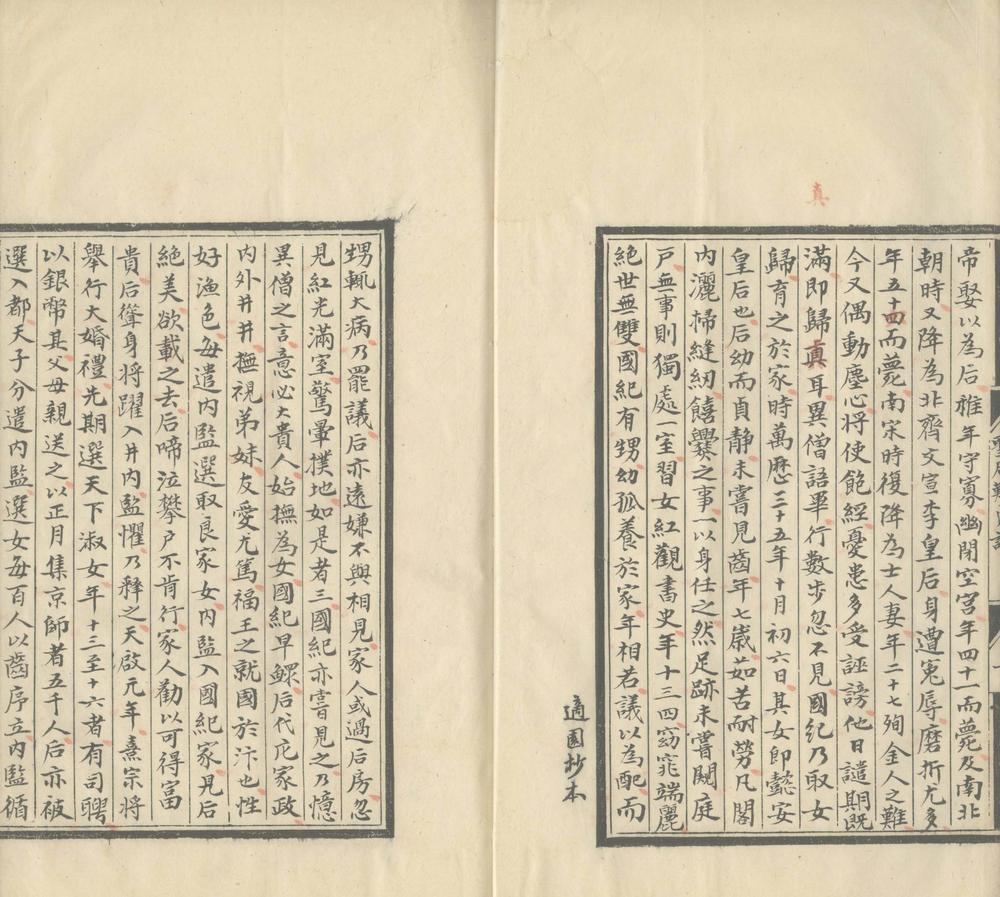 真
帝娶以為后稚年守寡幽閉空宮年四十一而薨及南北
朝時又降為北齊文宣李皇后身遭冤辱磨折尤多
年五十四而薨南宋時復降為士人妻年二十七殉金人之難
今又偶動塵心將使飽經憂患多受誣謗他日譴期既
滿即歸真耳異僧語畢行數步忽不見國紀乃取女
歸育之於家時萬歷三十五年十月初六日其女即懿安
皇后也后幼而貞静未嘗見齒年七歳茹苦耐勞凡閣
内灑掃縫紉饎爨之事一以身任之然足跡未嘗闚庭
戸無事則獨處一室習女紅觀書史年十三四窈窕端麗
絶世無雙國紀有甥幼孤養於家年相若議以為配而
適園抄本
甥輒大病乃罷議后亦遠嫌不與相見家人或過后房忽
見紅光滿室驚暈撲地如是者三國紀亦嘗見之乃憶
異僧之言意必大貴人始撫為女國紀早鰥后代庀家政
内外井井撫視弟妹友愛尤篤福王之就國於汴也性
好漁色每遣内監選取良家女内監入國紀家見后
絶美欲載之去后啼泣攀户不肯行家人勸以可得富
貴后聳身將躍入井内監懼乃釋之天啟元年熹宗將
舉行大婚禮先期選天下淑女年十三至十六者有司聘
以銀幣其父母親送之以正月集京師者五千人后亦被
選入都天子分遣内監選女每百人以齒序立内監循